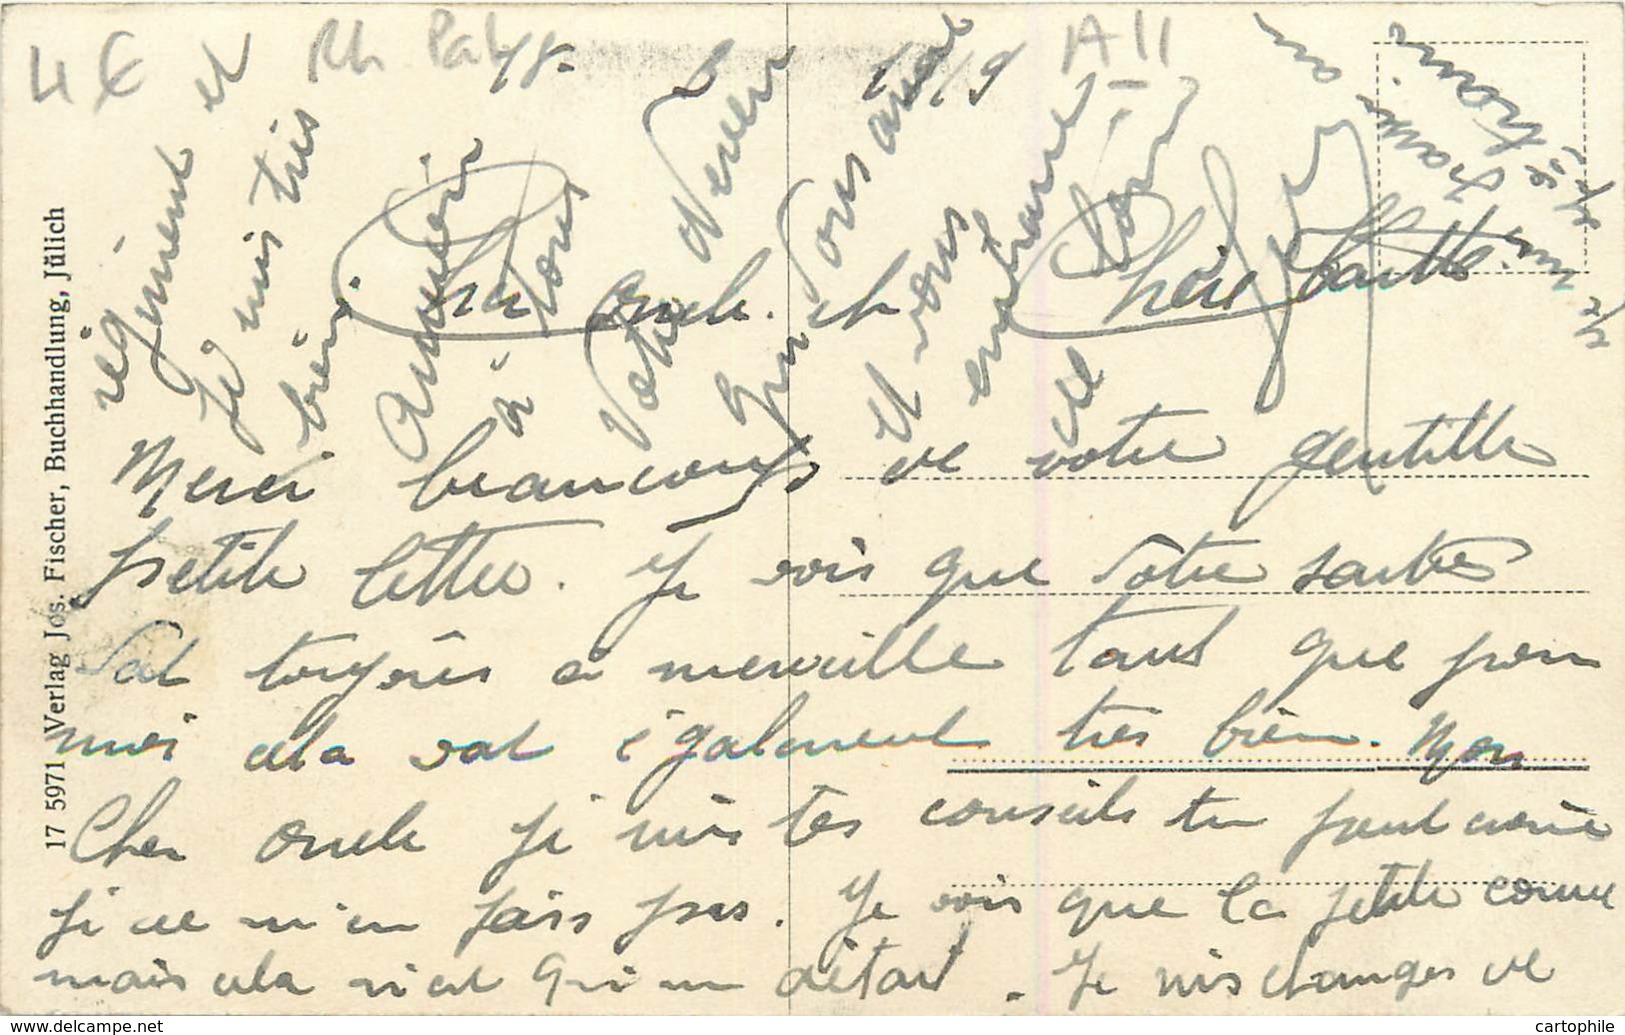 4 €
Rh Palz
18- 1919
A II
Cher Oncle et Chère
Merci beaucoup de votre gentille
petite lettre. Je vois que votre santée
vat toujours a merveille tant que pour
moi cela vat également très bien. Mon
Cher Oncle je suis tes conseils tu peut croire
je ne m'en fais pas. Je vois que la petite
mais cela n'est qu'un détail. Je suis changer de
régiment et
Je suis très
bien
à tous
Votre Neveu
qui vous
et vous
embrasse
de loin
17 5971 Verlag Jos. Fischer, Buchhandlung, Jülich
cartophile.com